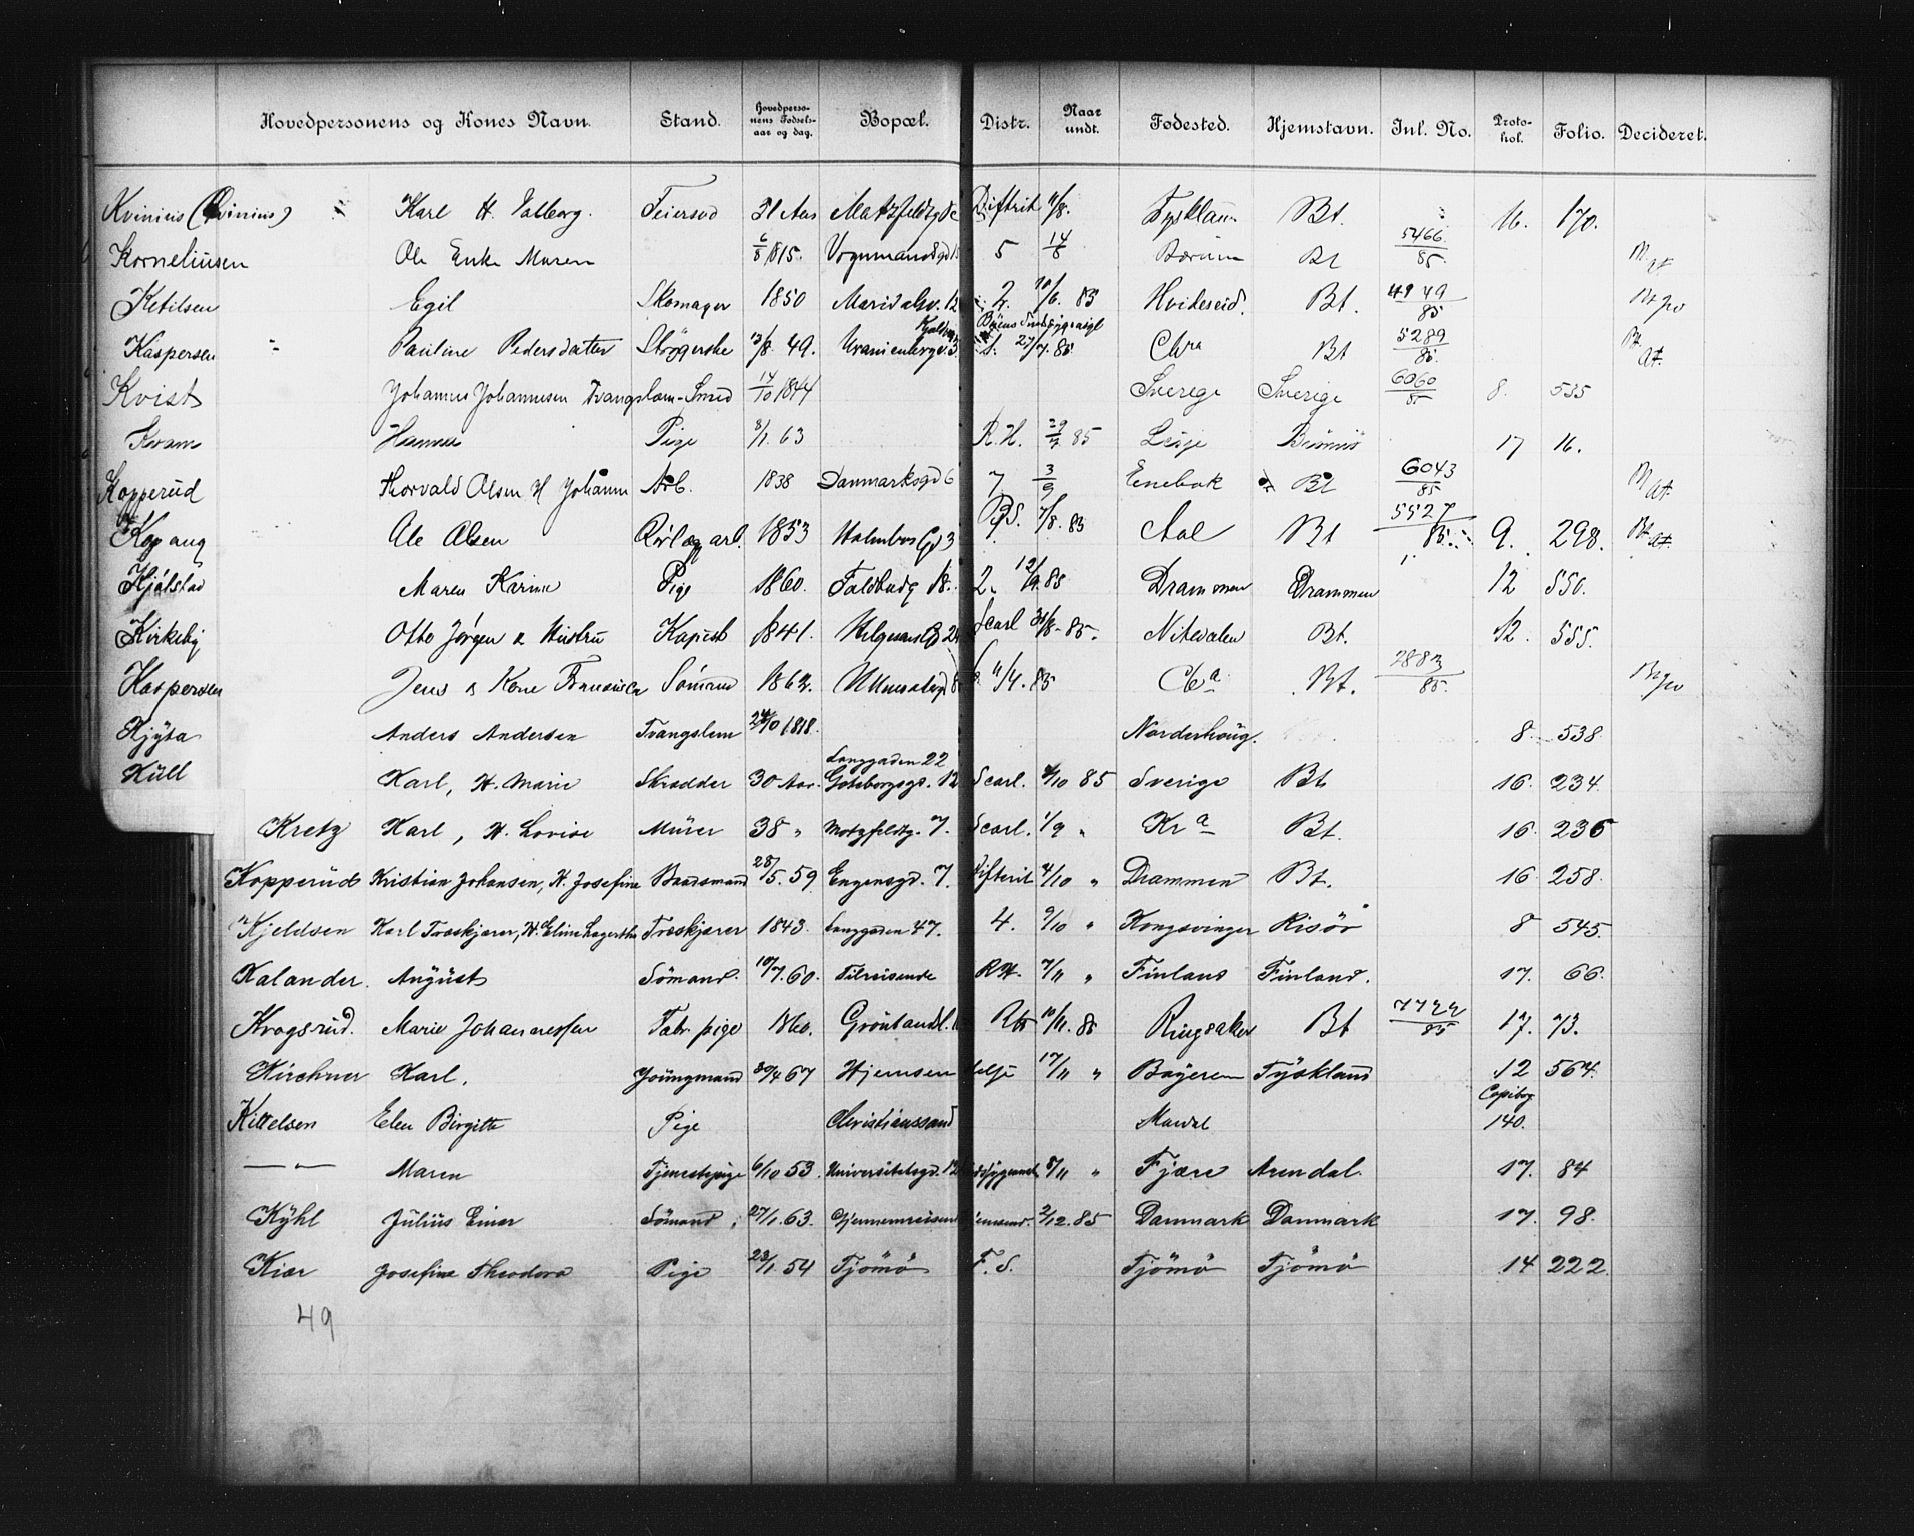 Hovedpersonens og Kones Navn. Stand. Hovedpersonens Fødselsaar og dag. Bopæl. Distr. Naar undt. Fødested. Hjemstavn. Inl. No. Protokol. Folio. Decideret.
Kvinius (Qvinius) Karl H. Valborg. 31 Aar Difterit 11/8. Bt. 16. 170.
Korneliusen Ole Enke Maren 6/8 1815. 5 14/8 Bærum Bt 5466/85
Ketilsen Egil Skomager 1850 Maridalsv. 12 2. 10/6. 85 Hvideseid. Bt. 4949/85
Kaspersen Pauline Pedersdatter Strygerske 13/8. 49. Uranienborgv. 3 27/7. 85. Chra Bt 5289/85
Kvist Johannes Johannesen Tvangslem-Smed 14/10 1844 Sverige Sverige 6060/85 8. 535
Kvam Pige 8/1. 63 R.H. 29/7 85 Lesje 17 16.
Kopperud Thorvald Olsen H Johanne Arb. 1838 Danmarksgd 6 7 3/9 Enebak Bt 6043/85
Kopang Ole Olsen 1853 Holmbos Gd 3 7/8. 83 Aal Bt 5527/85 9. 298.
Kjølstad Maren Karine Pige 1860. 18. 2. 12/9. 85 Drammen Drammen 12 550.
Kirkeby Otto Jørgen & Hustru 1841. Scarl 85. Nitedalen Bt. 12. 555.
Kaspersen Jens & Kone Fransisca Sømand 1862. 11/4. 85 Bt. 2883/85
Kjyta Anders Andersen Tvangslem 24/10 1818. Norderhoug. 8 538
Küll Karl, H. Marie Skrædder 30 Aar. Langgaden 22 Göteborgsgt. 12 Scarl. 4/10 85 Sverige Bt 16. 234.
Kretz Karl, H. Lovise Mürer 38 " Motzfeldtg. 7. Scarl. 1/9 " Kra Bt. 16. 236
Kopperud Kristian Johansen, H. Josefine Baadsmand 28/5. 59 Engensgd. 7. Difterit 4/10 " Drammen Bt. 16 258.
Kjeldsen Karl Træskjærer, H. Eline Lagertha Træskjærer 1843. Langgaden 47. 4. 9/10 " Kongsvinger Risör 8 545.
Kalander. August Sömand. 10/7. 60. Tilreisende RH. 7/11 " Finland Finland. 17. 66.
Krogsrud. Marie Johannessen Fabr. pige 1860. Grönlandsl. 10/11. 85 Ringsaker Bt 7722/85 17. 73.
Kirchner Karl. Youngmand 30/4 67 Hjemsen 17/11 " Bayern Tyskland 12 564.
Kittelsen Elen Birgitte Pige Christianssand Mandal Copibog 140.
— " — Maren Tjenestepige 6/10 53. Universitetsgd. 12 8/11 " Fjære Arendal. 17. 84
Kyhl Julius Einar Sömand. 27/1. 63. Gjennemreisende 2/12. 85 Danmark Danmark 17. 98.
Kiær Josefine Theodora Pige 23/1. 54 Tjömö F. S. Tjömö Tjömö 14 222.
49